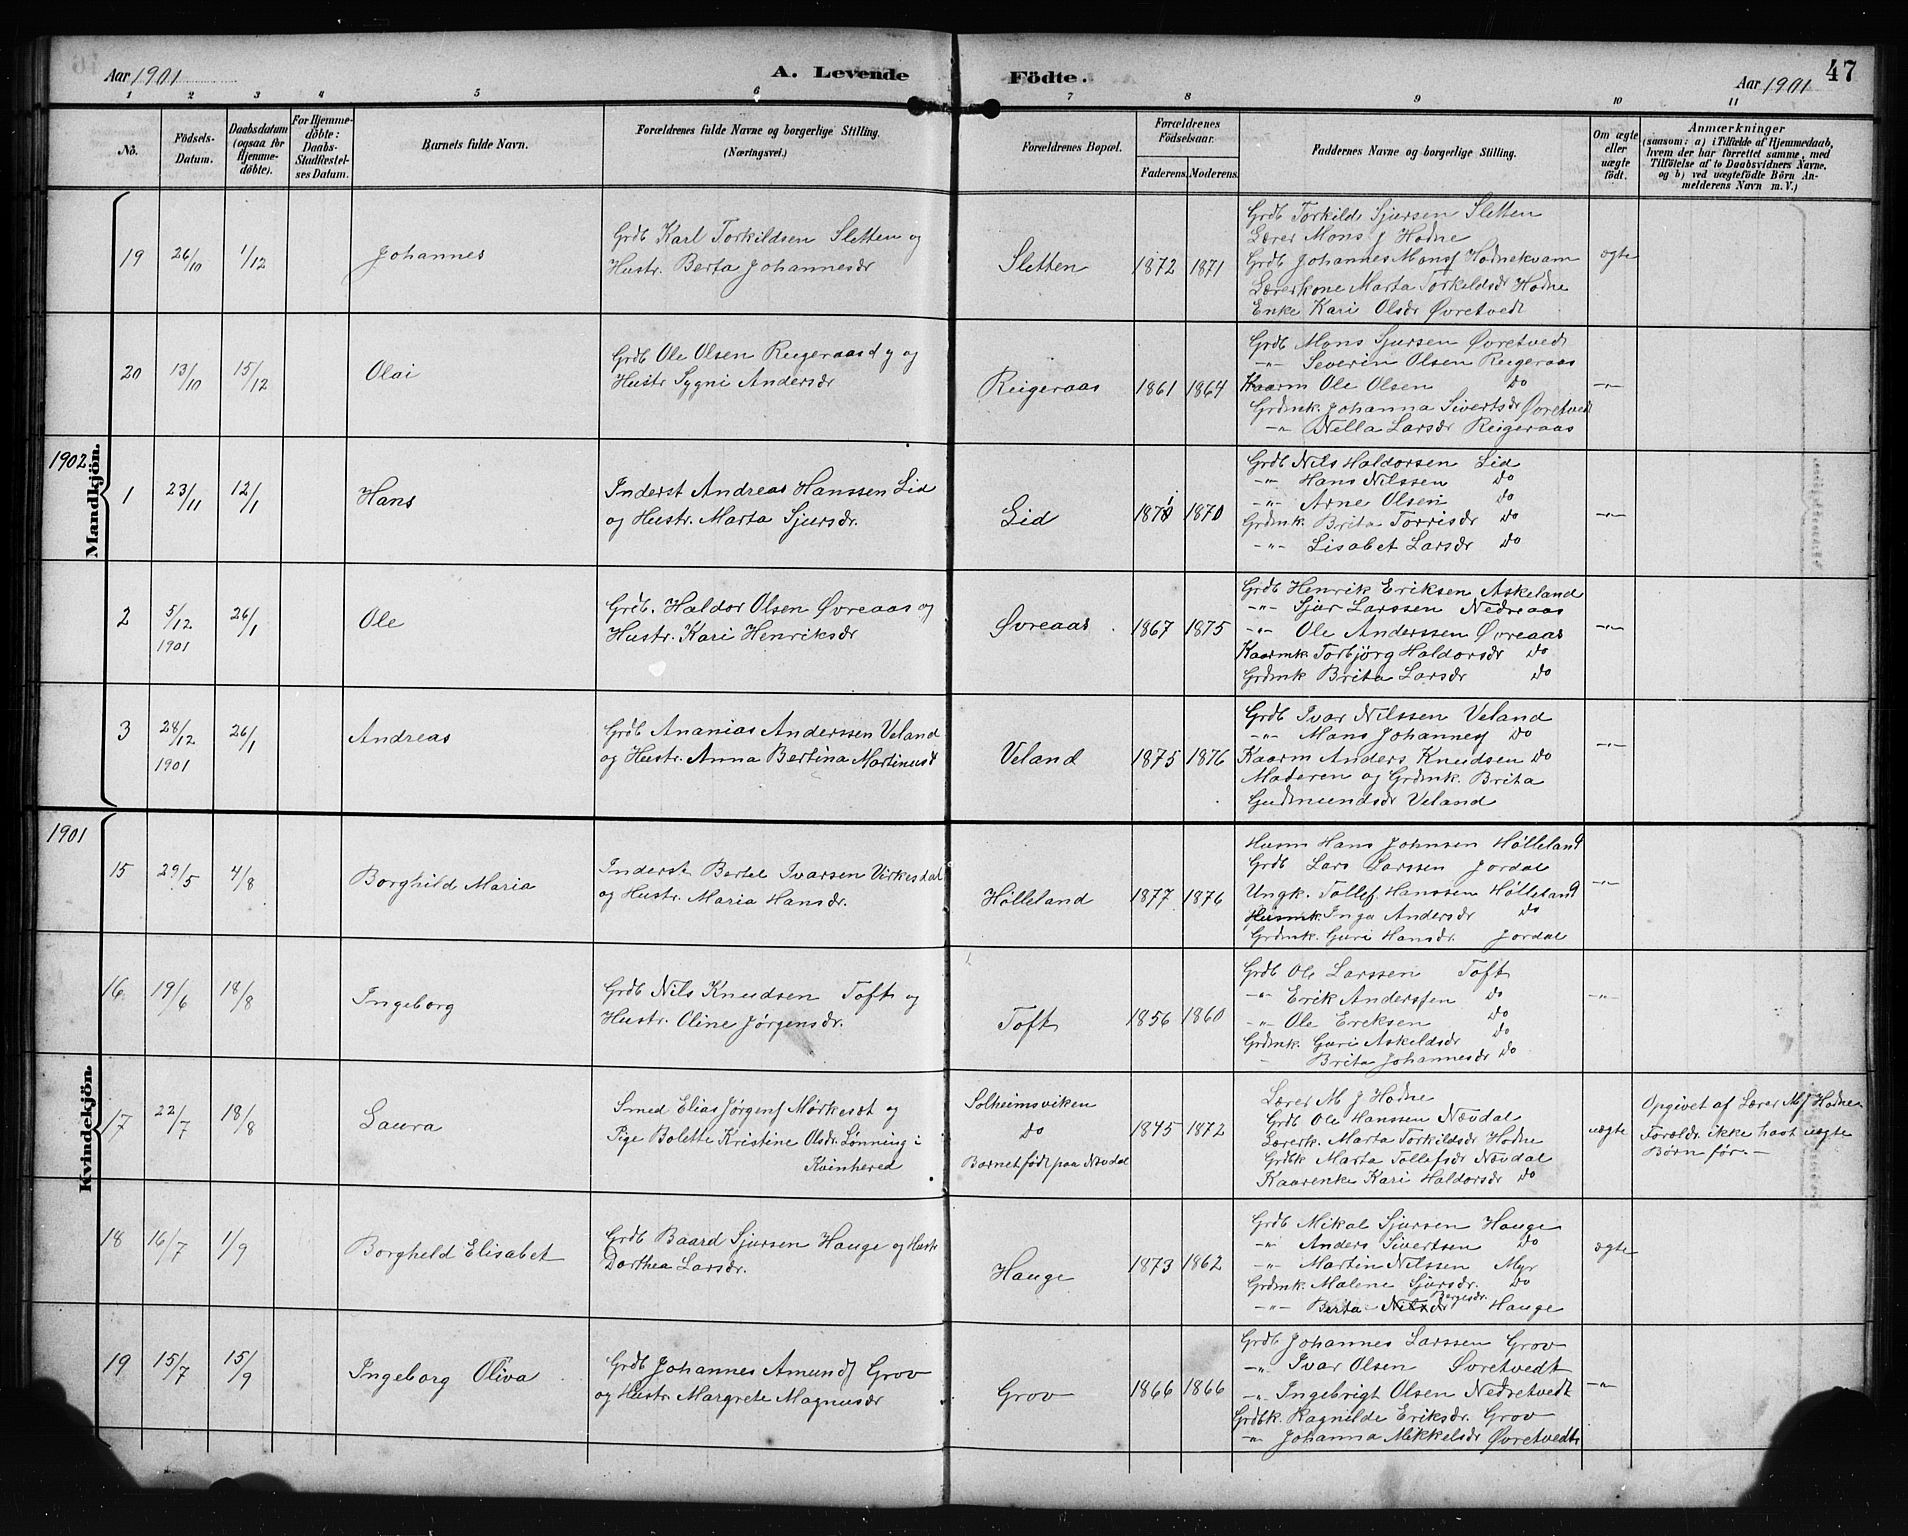 Aar 1901
A. Levende
Födte.
Aar 1901
47
1 2 3 4 5 6 7 8 9 10 11
No.
Födsels-
Datum.
Daabsdatum
(ogsaa for
Hjemme-
döbte).
For Hjemme-
döbte:
Daabs-
Stadfæstel-
ses Datum.
Barnets fulde Navn.
Forældrenes fulde Navne og borgerlige Stilling.
(Næringsvei.)
Forældrenes Bopæl.
Forældrenes
Födselsaar.
Faderens. Moderens.
Faddernes Navne og borgerlige Stilling.
Om ægte
eller
uægte
födt.
Anmærkninger
(saasom: a) i Tilfælde af Hjemmedaab,
hvem der har forrettet samme, med
Tilföielse af to Daabsvidners Navne,
og b) ved uægtefödte Börn An-
melderens Navn m. V.)
Mandkjön.
19 26/10 1/12 Johannes
Grdb Karl Torkildsen Sletten og
Hustr. Berta Johannesdr
Sletten 1872 1871
Grdb Torkild Sjursen Sletten
Lærer Mons J Hodne
Grdb Johannes Monsf Hodnekvam
Lærerkone Marta Torkildsdr Hodne
Enke Kari Olsdr Øvretvedt
ægte
20 13/10 15/12 Olai
Grdb Ole Olsen Reigeraas d y og
Hustr Sygni Andersdr
Reigeraas 1861 1864
Grdb Mons Sjursen Øvretvedt
-"- Severin Olsen Reigeraas
Kaarm Ole Olsen Do
Grdmk. Johanna Sivertsdr Øvretvedt
-"- Nella Larsdr Reigeraas
-"-
1902
1 23/11 12/1 Hans
Inderst Andreas Hanssen Lid
og Hustr. Marta Sjursdr.
Lid 1871 1870
Grdb Nils Haldorsen Lid
-"- Hans Nilssen Do
-"- Arne Olsen Do
Grdmk. Brita Torrisdr Do
-"- Lisabet Larsdr Do
-"-
2 5/12 1901 26/1 Ole
Grdb. Haldor Olsen Øvreaas og
Hustr. Kari Henriksdr
Øvreaas 1867 1875
Grdb Henrik Eriksen Askeland
-"- Sjur Larssen Nedreaas
-"- Ole Anderssen Øvreaas
Kaarmk Torbjørg Haldorsdr Do
Grdmk Brita Larsdr Do
-"-
3 28/12 1901 26/1 Andreas
Grdb Ananias Anderssen Veland
og Hustr. Anna Bertina Martinusd
Veland 1875 1876
Grdb Ivar Nilssen Veland
-"- Mons Johannesf Do
Kaarm Anders Knudsen Do
Moderen og Grdmk. Brita
Gudmundsdr Veland
-"-
1901
Kvindekjön.
15 29/5 4/8 Borghild Maria
Inderst Bertel Ivarsen Virkesdal
og Hustr. Maria Hansdr.
Hølleland 1877 1876
Husm Hans Johnsen Hølleland
Grdb Lars Larssen Jordal
Ungk. Tollef Hanssen Hølleland
Husmk. Inga Andersdr Do
Grdmk. Guri Hansdr. Jordal
-"-
16 19/6 18/8 Ingeborg
Grdb Nils Knudsen Toft og
Hustr. Oline Jørgensdr.
Toft 1856 1860
Grdb Ole Larssen Toft
-"- Erik Andersfen Do
-"- Ole Ereksen Do
Grdmk. Guri Askeldsdr Do
- Brita Johannesdr Do
-"-
17 22/7 18/8 Laura
Smed Elias Jørgensf Mørkesæt og
Pige Bolette Kristine Olsdr. Lønning i
Kvinhered
Solheimsviken
Do
Barnet født paa Nævdal
1845 1872
Lærer M J Hodne
Grdb Ole Hanssen Nævdal
Lærerk. Marta Torkildsdr Hodne
Grdbk Marta Tollefsdr Nævdal
Kaarenke Kari Haldorsdr Do
uægte
Opgivet af Lærer M J Hodne
Foreldr. ikke havt uægte
Børn før.-
18 16/7 1/9 Borgheld Elisabet
Grdb Baard Sjursen Hauge og Hustr
Dorthea Larsdr.
Hauge 1873 1862
Grdb Mikal Sjursen Hauge
-"- Anders Sivertsen Do
-"- Martin Nilssen Myr
Grdmk. Malene Sjursdr. Do
-"- Berta Nilsdr Børgesdr. Hauge
ægte
19 15/7 15/9 Ingeborg Oliva
Grdb Johannes Amundf Grov
og Hustr. Margrete Magnusdr
Grov 1866 1866
Grdb Johannes Larssen Grov
-"- Ivar Olsen Øvretvedt
-"- Ingebrigt Olsen Nedretvedt
Grdbk. Ragnilde Eriksdr. Grov
-"- Johanna Mikkelsdr Øvretvedt
-"-